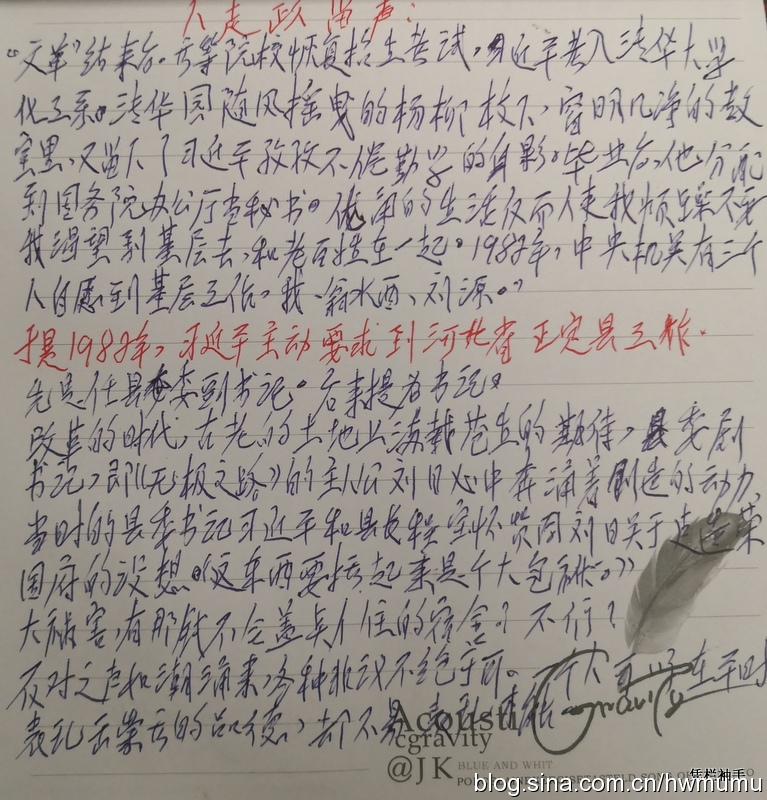 人走政留声:
“文革”结束后。高等院校恢复招生考试,习近平考入清华大学
化工系。清华园随风摇曳的杨柳枝下,窗明几净的教
室里,又留下了习近平孜孜不倦勤学的身影。毕业后,他分配
到国务院办公厅当秘书。优闲的生活反而使我烦躁不安
我渴望到基层去,和老百姓在一起。1982年,中央机关有三个
人自愿到基层工作,我、翁永曦、刘源。”
于是1982年,习近平主动要求到河北省正定县工作.
先是任县委副书记。后来提为书记。
改革的时代,古老的土地上满载苍生的期待,县委副
书记,即《无极之路》的主人公刘日心中奔涌着创造的动力,
当时的县委书记习近平和县长程宝怀赞同刘日关于建造荣
国府的设想。《这东西要搞起来是个大包袱。》
大祸害,有那钱不会盖点儿住的宿舍?不行?
反对之声如潮涌来,各种非议不绝于耳。一个人可以在平时
表现出崇高的品德,却不易
Acousti
cgravity
Gravity
@JK
BLUE AND WHIT
凭栏袖手
blog.sina.com.cn/hwmumu